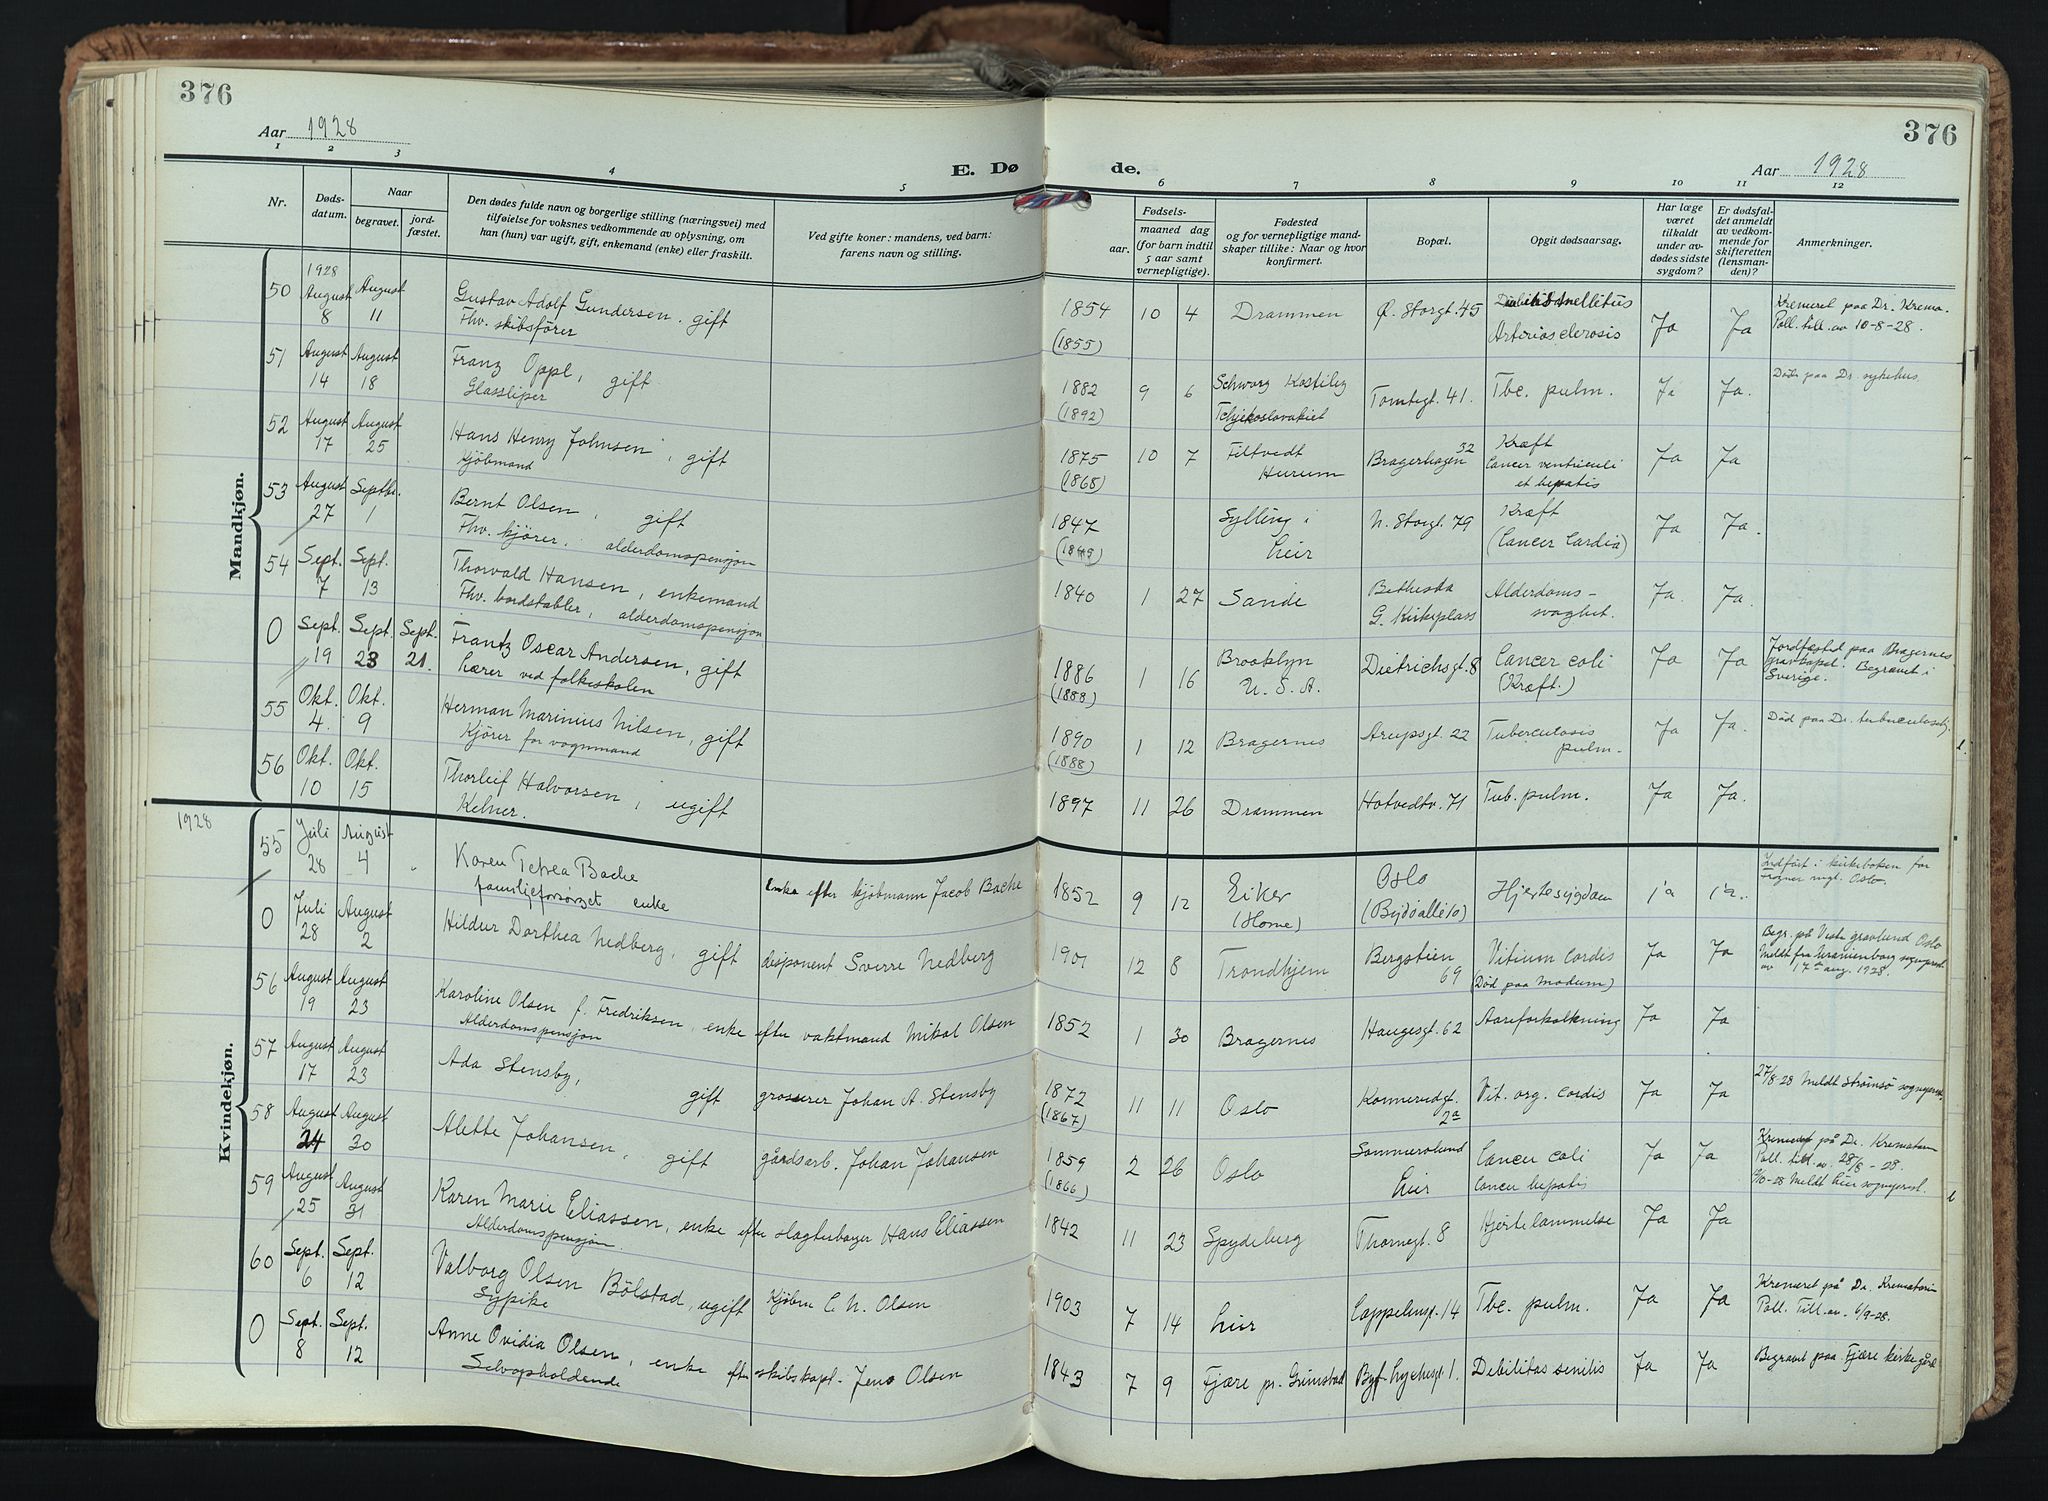 376
Aar 1928
1 2 3 4 5
E. Dø
Nr.
Døds-
datum.
Naar
begravet.
jord-
fæstet.
Den dødes fulde navn og borgerlige stilling (næringsvei) med
tilføielse for voksnes vedkommende av oplysning, om
han (hun) var ugift, gift, enkemand (enke) eller fraskilt.
Ved gifte koner: mandens, ved barn:
farens navn og stilling.
376
de.
Aar 1928
6 7 8 9 10 11 12
Fødsels-
aar.
maaned dag
(for barn indtil
5 aar samt
vernepligtige).
Fødested
og for vernepligtige mand-
skaper tillike: Naar og hvor
konfirmert.
Bopæl.
Opgit dødsaarsag.
Har læge
været
tilkaldt
under av-
dødes sidste
sygdom?
Er dødsfal-
det anmeldt
av vedkom-
mende for
skifteretten
(lensman-
den)?
Anmerkninger.
Mandkjøn.
50 1928 August 8 August 11 Gustav Adolf Gundersen. gift
Fhv. skibsfører
1854 (1855) 10 4 Drammen Ø. Storgt. 45 mellitus
Arteriosclerosis Ja Ja Kremeret paa Dr. Krema.
Poll. till. av 10-8-28.
51 August 14 August 18 Franz Oppl, gift
Glassliper
1882 (1892) 9 6 Schwarz
Tomtegt. 41. Tbc. pulm. Ja Ja. Død paa Dr. sykehus
52 August 17 August 25 Hans Henry Johnsen, gift
Kjøbmand
1875 (1868) 10 7 Filtvedt
Hurum Bragerhagen 32 Kræft
Cancer ventriculi
et hepatis Ja Ja
53 August 27 Septbr. 1 Bernt Olsen, gift
Fhv. kjører. alderdomspensjon
1847 Sylling i
Lier N. Storgt. 79 Kræft
(Cancer Cardia) Ja Ja.
54 Sept. 7 Sept. 13 Thorvald Hansen, enkemand
Fhv. bordstabler, alderdomspensjon
1840 1 27 Sande Bethesda
G. Kirkeplass Alderdoms-
svaghet. Ja. Ja.
0 Sept. 19 Sept. 23 Sept. 21. Frantz Oscar Andersen, gift
Lærer ved folkeskolen
1886 (1888) 1 16 Brooklyn
U. S. A. Dietrichsgt. 8 Cancer coli
(Kræft.) Ja Ja Jordfæstet paa Bragernes
gravkapel. Begravet i
Sverige.
55 Okt. 4 Okt. 9 Herman Marinius Nilsen, gift
Kjører for vognmand
1890 (1888) 1 12 Bragernes Arupsgt. 22 Tuberculosis
pulm. Ja Ja. Død paa Dr.
56 Okt. 10 Okt. 15 Thorleif Halvorsen, ugift
Kelner.
1897 11 26 Drammen Hotvedtv. 71 Tub. pulm. Ja Ja.
Kvindekjøn.
1928
55 Juli 28 August 4 Karen Petrea Bache
familieforsørget enke Enke efter kjøbmann Jacob Bache
1852 9 12 Eiker
(Home) Oslo
(Bygdøallé 10) Hjertesygdom ja ja. Indført i kirkeboken for
Frogner mgt. Oslo.
0 Juli 28 August 2 Hildur Dorthea Nedberg, gift disponent Sverre Nedberg
1901 12 8 Trondhjem Bergstien
69 Vitium Cordis
(Død paa Modum) Ja Ja Begr. på Vestre gravlund Oslo
Meldt fra Uranienborg
av 17de aug. 1928.
56 August 19 August 23 Karoline Olsen f. Fredriksen, enke efter vaktmand Mikal Olsen
Alderdomspensjon
1852 1 30 Bragernes Haugesgt. 62 Aareforkalkning Ja Ja
57 August 17 August 23 Ada Stensby, gift grosserer Johan A. Stensby
1872 (1867) 11 11 Oslo Konnerudgt.
2a Vit. org. cordis Ja Ja 27/8-28 Meldt Strømsø sogneprest.
58 August 24 August 30 Alette Johansen, gift gårdsarb. Johan Johansen
1859 (1866) 2 26 Oslo
Lier Cancer coli
Cancer hepatis Ja Ja Kremeret på Dr. Krematorium
Poll. till. av. 28/8-28.
Meldt Lier sogneprest.
59 August 25 August 31 Karen Marie Eliassen, enke efter slagterborger Hans Eliassen
Alderdomspensjon.
1842 11 23 Spydeberg Thornegt. 8 Hjertelammelse Ja Ja
60 Sept. 6 Sept. 12 Valborg Olsen Bölstad, ugift Kjøbm C. N. Olsen
Sypike
1903 7 14 Lier Cappelensgt. 14 Tbc. pulm. Ja Ja Kremeret på Dr. Krematorium
Poll. Till. av. 6/9-28.
0 Sept. 8 Sept. 12 Anne Ovidia Olsen, enke eft skibskapt. Jens Olsen
Selvopholdende
1843 7 9 Fjære pr. Grimstad Lychesgt 1. Debilitas senilis Ja Ja Begravet paa Fjære kirkegård